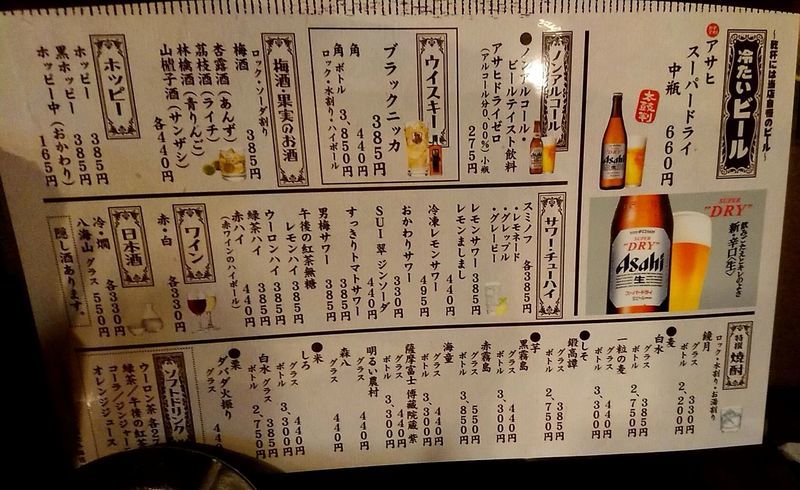 〜乾杯には当店自慢のビール〜
冷たいビール
アサヒ
スーパードライ
中瓶 660円
太鼓判
Asahi
SUPER
"DRY"
飲みごたえとキレのよさ
新・辛口〈生〉
SUPER
"DRY"
Asahi
生
スーパードライ
ノンアルコール
●ノンアルコール・
ビールテイスト飲料
アサヒドライゼロ
(アルコール分0.00%) 小瓶
275円
ウイスキー
ブラックニッカ
385円
角 440円
角 ボトル 3,850円
ロック・水割り・ハイボール
梅酒・果実のお酒
ロック・ソーダ割り
梅酒 385円
杏露酒(あんず)
茘枝酒(ライチ)
林檎酒(青りんご)
山樝子酒(サンザシ)
各440円
ホッピー
ホッピー 385円
黒ホッピー 385円
ホッピー中(おかわり)
165円
サワー・チューハイ
スミノフ 各385円
・レモネード
・アップル
・グレーピー
レモンサワー 385円
レモンましまし
440円
冷凍レモンサワー
495円
おかわりサワー
330円
SUI 翠 ジンソーダ
440円
すっきりトマトサワー
385円
男梅サワー 385円
午後の紅茶無糖
レモンハイ 385円
ウーロンハイ 385円
緑茶ハイ 385円
赤ハイ 440円
(赤ワインのハイボール)
ワイン
赤・白 各330円
日本酒
冷・燗 各330円
八海山 グラス 550円
隠し酒あります。
特撰 焼酎
ロック・水割り・お湯割り
鏡月 グラス 330円
ボトル 2,200円
●麦
白水 グラス 385円
ボトル 2,750円
一粒の麦 グラス 440円
ボトル 3,300円
●しそ
鍛高譚 グラス 385円
ボトル 2,750円
●芋
黒霧島 グラス 440円
ボトル 3,300円
赤霧島 グラス 550円
ボトル 3,850円
海童 グラス 440円
ボトル 3,300円
薩摩富士 傳藏院蔵 紫
グラス 440円
ボトル 3,300円
明るい農村
グラス 440円
森八 グラス 440円
●米
しろ グラス 440円
ボトル 3,300円
白水 グラス 385円
ボトル 2,750円
●栗
ダバダ火振り
グラス 44
ソフトドリンク
ウーロン茶 各2
緑茶/午後の紅茶
コーラ/ジンジャー
オレンジジュース